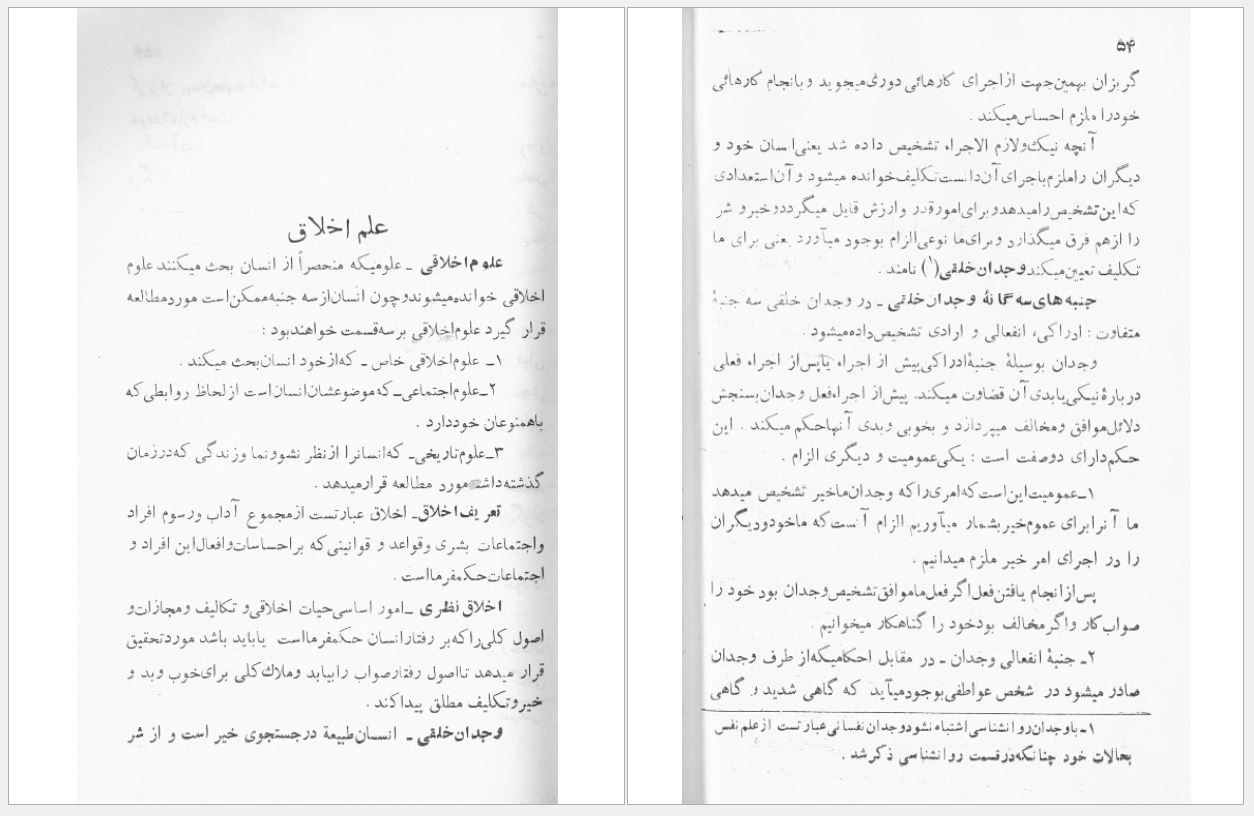 علم اخلاق
علوم اخلاقی ـ علومیکه منحصراً از انسان بحث میکنند علوم
اخلاقی خوانده میشوند و چون انسان از سه جنبه ممکن است مورد مطالعه
قرار گیرد علوم اخلاقی بر سه قسمت خواهند بود :
۱ـ علوم اخلاقی خاص ـ که از خود انسان بحث میکند .
۲ـ علوم اجتماعی ـ که موضوعشان انسان است از لحاظ روابطی که
باهمنوعان خود دارد .
۳ـ علوم تاریخی ـ که انسانرا از نظر نشوونما و زندگی که در زمان
گذشته داشته مورد مطالعه قرار میدهد .
تعریف اخلاق ـ اخلاق عبارتست از مجموع آداب و رسوم افراد
واجتماعات بشری و قواعد و قوانینی که بر احساسات و افعال این افراد و
اجتماعات حکمفرما است .
اخلاق نظری ـ امور اساسی حیات اخلاقی و تکالیف و مجازات و
اصول کلی را که بر رفتار انسان حکمفرما است یا باید باشد مورد تحقیق
قرار میدهد تا اصول رفتار صواب را بیابد و ملاك کلی برای خوب و بد و
خیر و تکلیف مطلق پیدا کند .
وجدان خلقی ـ انسان طبیعة در جستجوی خیر است و از شر
۵۴
گریزان بهمین جهت از اجرای کارهائی دوری میجوید و بانجام کارهائی
خودرا ملزم احساس میکند .
آنچه نیك و لازم الاجراء تشخیص داده شد یعنی انسان خود و
دیگران را ملزم باجرای آن دانست تکلیف خوانده میشود و آن استعدادی
که این تشخیص را میدهد و برای امور قدر و ارزش قایل میگردد و خیر و شر
را از هم فرق میگذارد و برای ما نوعی الزام بوجود میآورد یعنی برای ما
تکلیف تعیین میکند وجدان خلقی (۱) نامند .
جنبه های سه گانهٔ وجدان خلقی ـ در وجدان خلقی سه جنبهٔ
متفاوت : ادراکی، انفعالی و ارادی تشخیص داده میشود .
وجدان بوسیلهٔ جنبهٔ ادراکی پیش از اجراء یا پس از اجراء فعلی
دربارهٔ نیکی یا بدی آن قضاوت میکند. پیش از اجراء فعل وجدان بسنجش
دلائل موافق و مخالف میپردازد و بخوبی و بدی آنها حکم میکند . این
حکم دارای دوصفت است : یکی عمومیت و دیگری الزام .
۱ـ عمومیت این است که امری را که وجدان ما خیر تشخیص میدهد
ما آنرا برای عموم خیر بشمار میآوریم الزام آنست که ما خود و دیگران
را در اجرای امر خیر ملزم میدانیم .
پس از انجام یافتن فعل اگر فعل ما موافق تشخیص وجدان بود خود را
صواب کار واگر مخالف بود خود را گناهکار میخوانیم .
۲ـ جنبهٔ انفعالی وجدان ـ در مقابل احکامیکه از طرف وجدان
صادر میشود در شخص عواطفی بوجود میآید که گاهی شدید و گاهی
۱ـ با وجدان روانشناسی اشتباه نشود وجدان نفسانی عبارتست از علم نفس
بحالات خود چنانکه در قسمت روانشناسی ذکر شد .